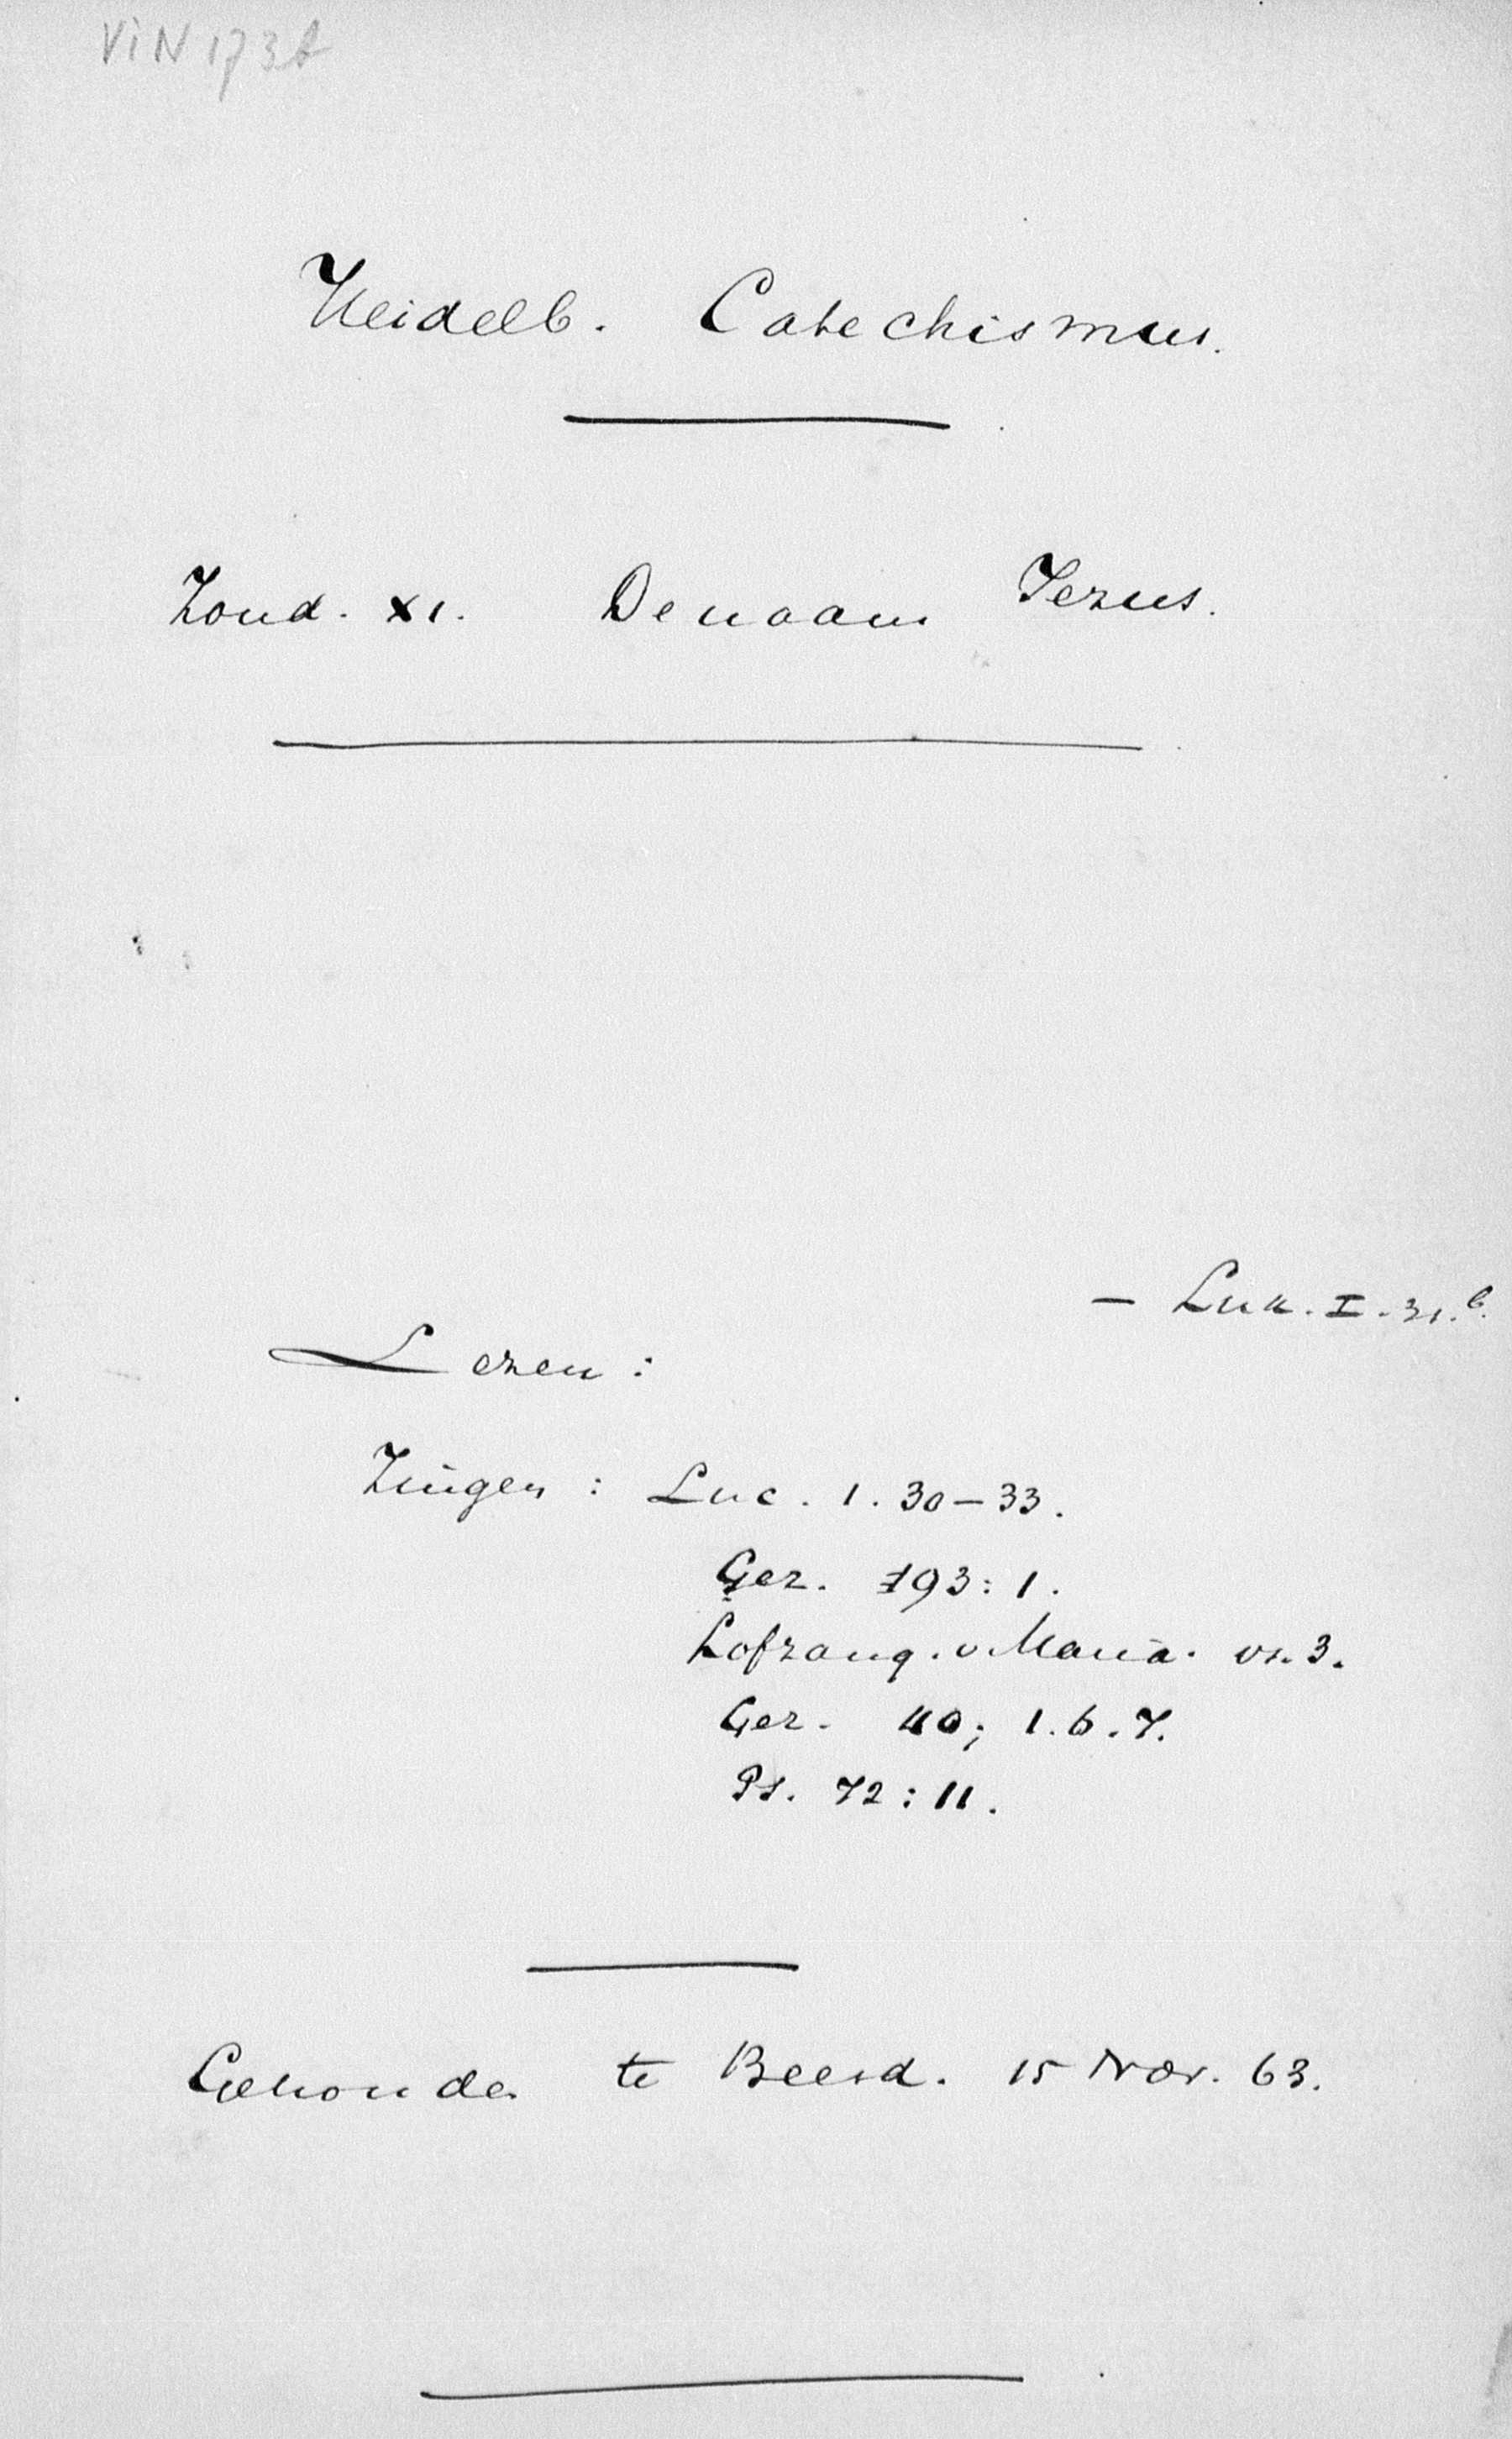 Heidelb. Catechismus.
Zond. XI. De naam Jezus.
- Luk. I. 31.b.
Lezen:
Zingen: Luc. 1. 30-33.
Gez. 193: 1.
Lofzang. v. Maria. vs. 3.
Gez. 40; 1. 6. 7.
Ps. 72: 11.
Gehouden te Beesd. 15 Nov. 63.